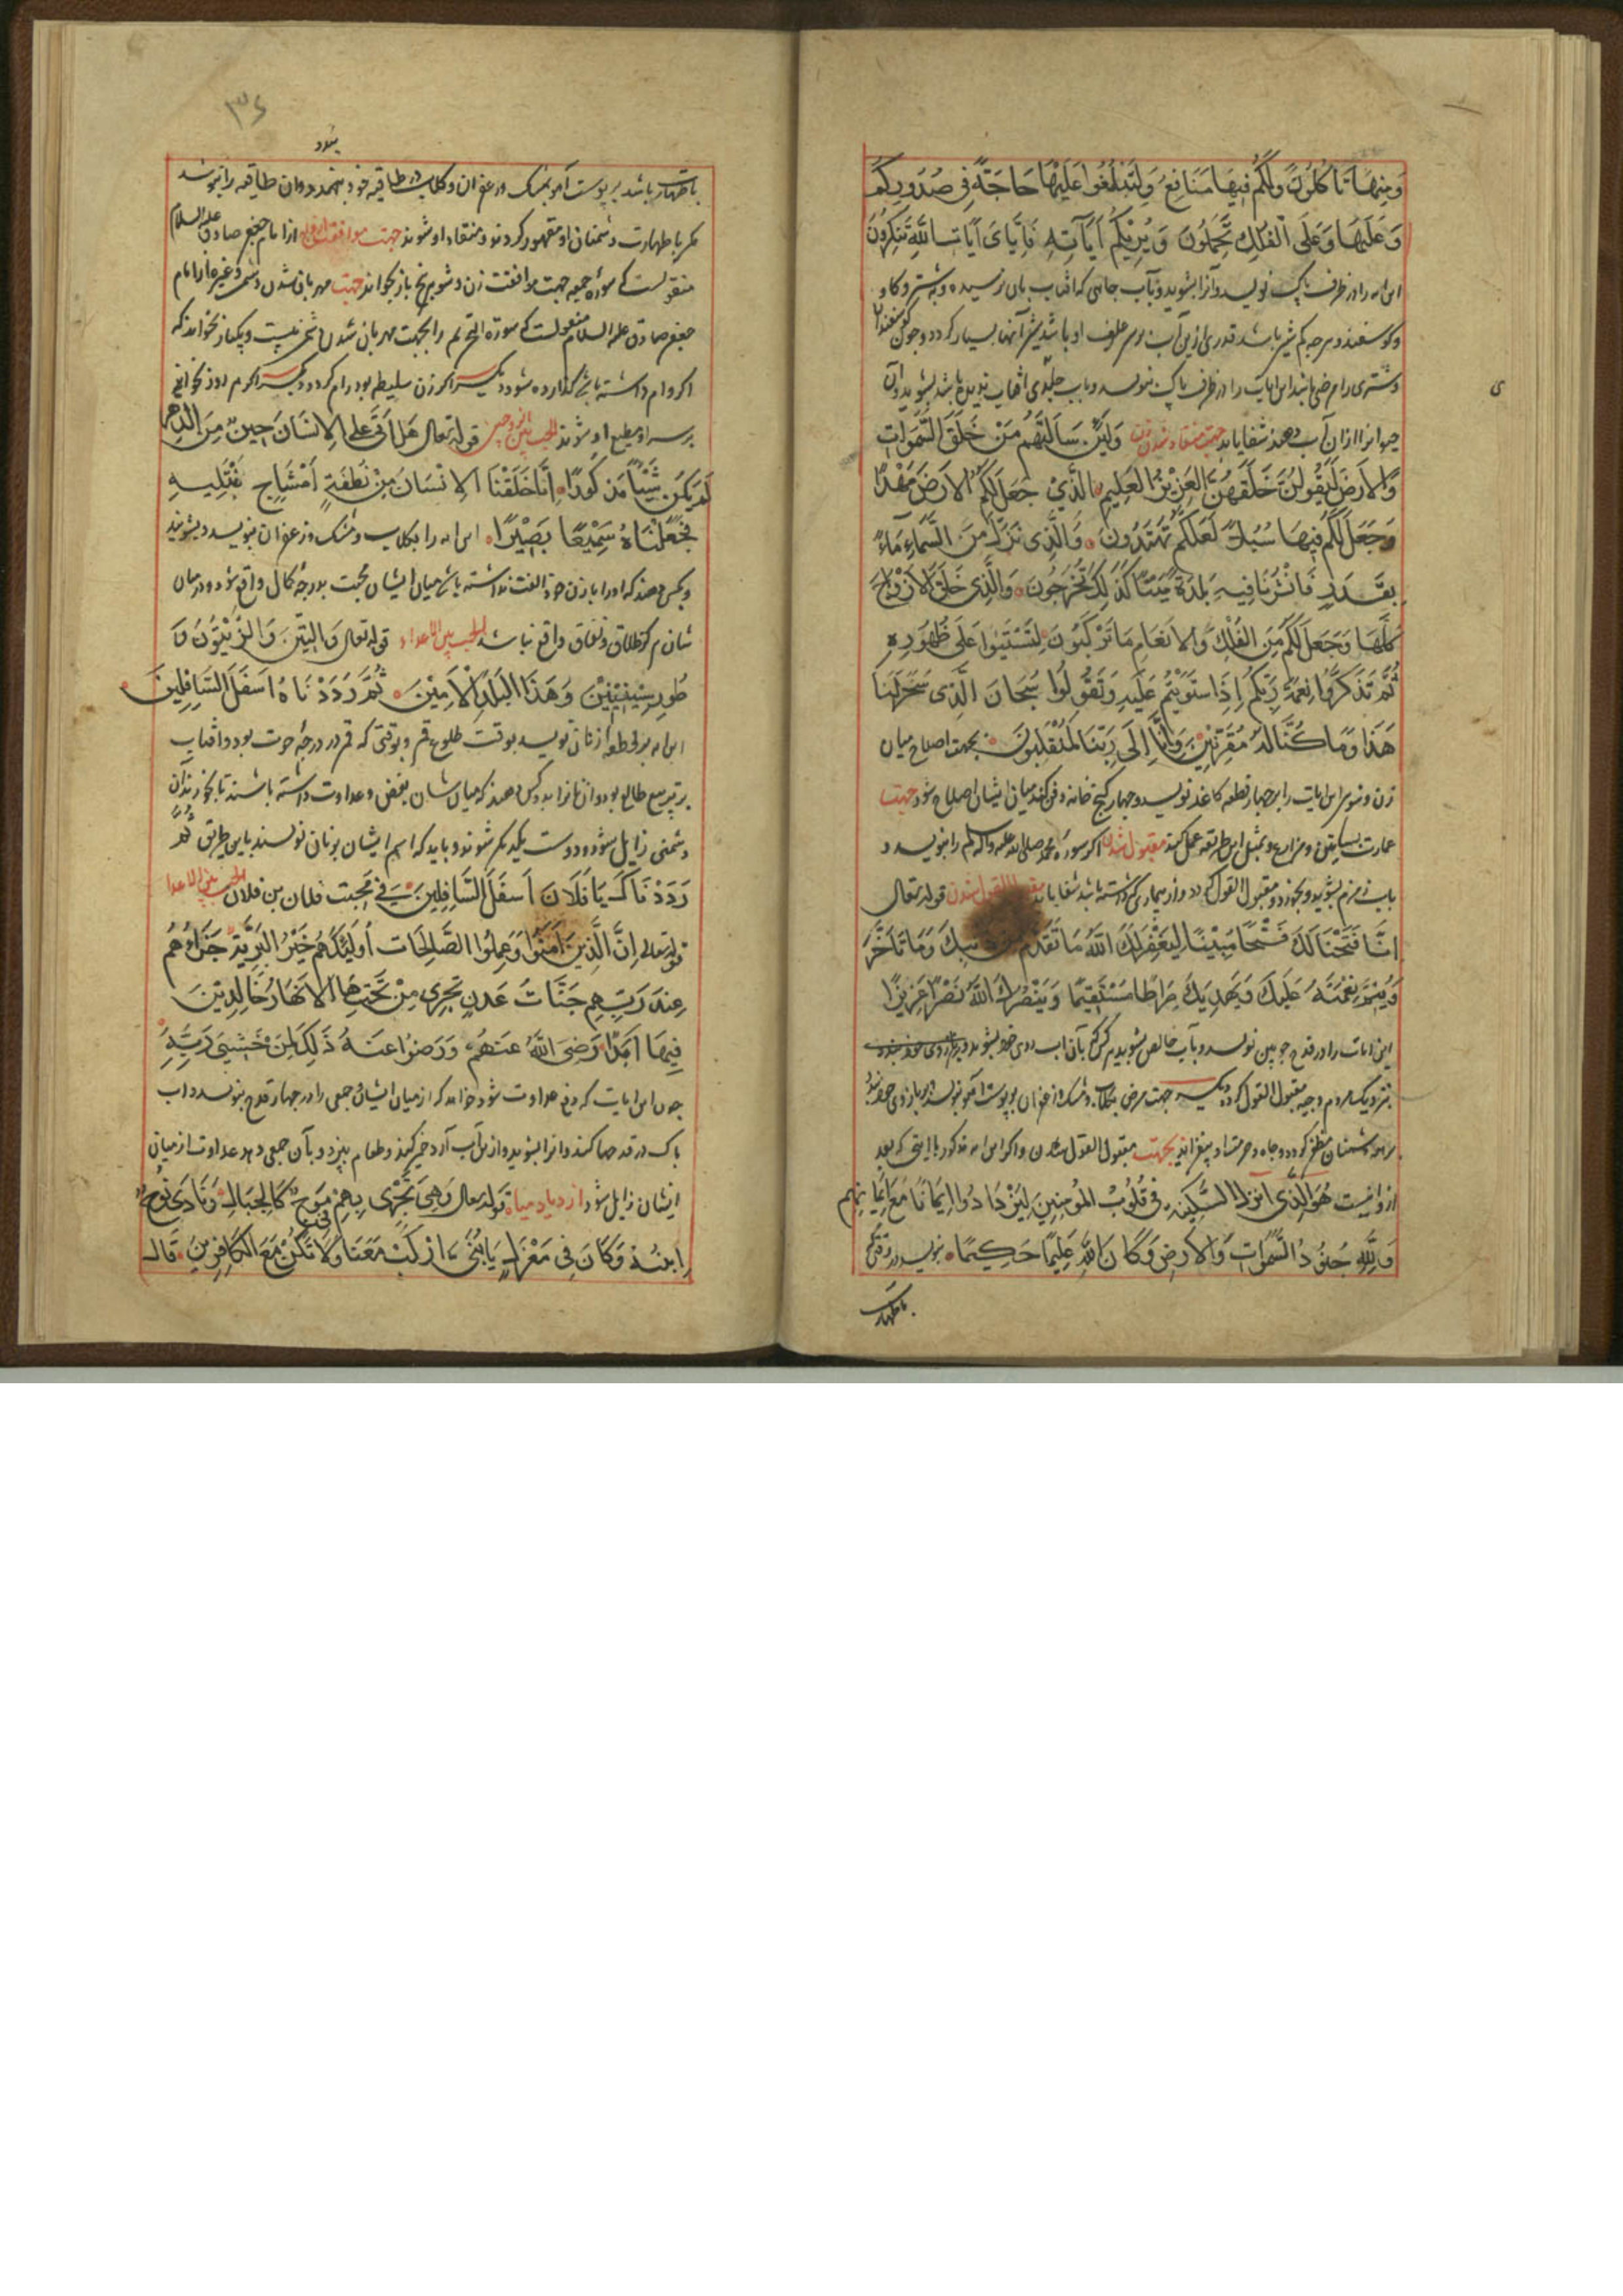 وَمِنهَا تَأكُلُونَ وَلَكُم فِيهَا مَنَافِعُ وَلِتَبلُغُوا عَلَيهَا حَاجَةً فِي صُدُورِكُم
وَعَلَيهَا وَعَلَى الفُلكِ تُحمَلُونَ وَيُرِيكُم آيَاتِهِ فَأَيَّ آيَاتِ اللهِ تُنكِرُونَ
این ایه را در ظرف پاک نویسد و آنرا بشوید و بآب چاهی که افتاب بان نرسیده و بشتر و کاو
و کوسفند و هرچه کم شیر باشد قدری ازین آب بر سر علوف او باشد شیر آنها بسیار کردد و چون کوسفند
و شتری را مرضی باشد این ایات را در ظرف پاک بنویسد و باب باشد بشوید و ان
حیوانرا ازان آب دهند شفا یابد جهت منقاد شدن زن وَلَئِن سَأَلتَهُم مَن خَلَقَ السَّمَوَاتِ
وَالاَرضَ لَيَقُولُنَّ خَلَقَهُنَّ العَزِيزُ العَلِيمُ الَّذِي جَعَلَ لَكُمُ الاَرضَ مَهدًا
وَجَعَلَ لَكُم فِيهَا سُبُلًا لَعَلَّكُم تَهتَدُونَ وَالَّذِي نَزَّلَ مِنَ السَّمَاءِ مَاءً
بِقَدَرٍ فَانشَرنَا فِيهِ بَلدَةً مَيتًا كَذَلِكَ تُخرَجُونَ وَالَّذِي خَلَقَ الاَزوَاجَ
كُلَّهَا وَجَعَلَ لَكُم مِنَ الفُلكِ وَالاَنعَامِ مَا تَركَبُونَ لِتَستَوُوا عَلَى ظُهُورِهِ
ثُمَّ تَذكُرُوا نِعمَةَ رَبِّكُم اِذَا استَوَيتُم عَلَيهِ وَتَقُولُوا سُبحَانَ الَّذِي سَخَّرَ لَنَا
هَذَا وَمَا كُنَّا لَهُ مُقرِنِينَ وَاِنَّا اِلَى رَبِّنَا لَمُنقَلِبُونَ بجهت اصلاح میان
زن و شوی این ایات را بر چهار قطعه کاغذ نویسد و چهار کنج خانه دفن کند میان ایشان اصلاح شود جهت
عمارت بساتین و مزارع و بمثل این طریقه عمل کند مقبول شدن اکر سوره محمد صلی الله علیه واله وسلم را بنویسد و
باب زمزم بشوید و بخورد و مقبول القول کردد و از بیماری که داشته باشد شفا یابد مقبول القول شدن قوله تعالی
اِنَّا فَتَحنَا لَكَ فَتحًا مُبِينًا لِيَغفِرَ لَكَ اللهُ مَا تَقَدَّمَ مِن ذَنبِكَ وَمَا تَأَخَّرَ
وَيُتِمَّ نِعمَتَهُ عَلَيكَ وَيَهدِيَكَ صِرَاطًا مُستَقِيمًا وَيَنصُرَكَ اللهُ نَصرًا عَزِيزًا
این ایات را در قدح چوبین نویسد و بآب خالص بشوید هر که بآن اب روی خود بشوید
بنزدیک مردم وجیه و مقبول القول کردد دیکر جهت مرض بکلاب و مشک و زعفران بر پوست آهو نویسد و بر بازوی خود بندد
بر دشمنان مظفر کردد و جاه و حرمت او بیفزاید بجهت مقبول القول شدن و اکر این ایه مذکور با ایتی که بعد
ازوانیست هُوَ الَّذِي اَنزَلَ السَّكِينَةَ فِي قُلُوبِ المُؤمِنِينَ لِيَزدَادُوا اِيمَانًا مَعَ اِيمَانِهِم
وَلِلَّهِ جُنُودُ السَّمَوَاتِ وَالاَرضِ وَكَانَ اللهُ عَلِيمًا حَكِيمًا بنویسد در وقتی که
با طهارت
٣٤
باطهارت باشد بر پوست آهو بمشک و زعفران و کلاب در طاقیه خود بنهد و ان طاقیه را نپوشد
مکر با طهارت دشمنان او مقهور کردند و منقاد او شوند جهت موافقت از امام جعفر صادق علیه السلام
منقولست که سوره جمعه جهت موافقت زن و شو پنج بار بخواند جهت مهربان شدن دشمن و غیره از امام
جعفر صادق علیه السلام منقولست که سوره التحریم را بجهت مهربان شدن دشمن بیست و یکبار بخواند که
اکر وام داشته باشد کذارده شود دیکر اکر زن سلیطه بود رام کردد دیکر اکر هر روز بخوانی
مطیع او شوند للحب بین الزوجین قوله تعالی هَل اَتَى عَلَى الاِنسَانِ حِينٌ مِنَ الدَّهرِ
لَم يَكُن شَيئًا مَذكُورًا اِنَّا خَلَقنَا الاِنسَانَ مِن نُطفَةٍ اَمشَاجٍ نَبتَلِيهِ
فَجَعَلنَاهُ سَمِيعًا بَصِيرًا این ایه را بکلاب و مشک و زعفران بنویسد و بشویند
و بکسی دهند که او را با زن خود الفت نداشته باشد میان ایشان محبت بدرجه کمال واقع شود و درمیان
شان هرکز طلاق و نفاق واقع نباشد للحب بین الاعداء قوله تعالی وَالتِّينِ وَالزَّيتُونِ وَ
طُورِ سِينِينَ وَهَذَا البَلَدِ الاَمِينِ ثُمَّ رَدَدنَاهُ اَسفَلَ السَّافِلِينَ
این ایه بر قطعه از نان نویسد بوقت طلوع قمر و بوقتی که قمر در درجه حوت بود و افتاب
بر تربیع طالع بود و ان نانرا بدو کس دهند که میان شان بغض و عداوت داشته باشند تا بخورند آن
دشمنی زایل شود و دوست یکدیکر شوند و باید که اسم ایشان بر نان نویسند باین طریق ثُمَّ
رَدَدنَاكَ يَا فُلَانَ اَسفَلَ السَّافِلِينَ فِي مَحَبَّتِ فلان بن فلان للحب بین الاعدا
قوله تعالی اِنَّ الَّذِينَ آمَنُوا وَعَمِلُوا الصَّالِحَاتِ اُولَئِكَ هُم خَيرُ البَرِيَّةِ جَزَاءُهُم
عِندَ رَبِّهِم جَنَّاتُ عَدنٍ تَجرِي مِن تَحتِهَا الاَنهَارُ خَالِدِينَ
فِيهَا اَبَدًا رَضِيَ اللهُ عَنهُم وَرَضُوا عَنهُ ذَلِكَ لِمَن خَشِيَ رَبَّهُ
چون این ایات که دفع عداوت شود خواهد که از میان ایشان جمعی را در چهار قدح بنویسد و اب
پاک در قدحها کنند و انرا بشوید و ازین آب آرد خمیر کند و طعام بپزد و بآن جمعی دهد عداوت از میان
ایشان زایل شود ازدیاد میاه قوله تعالی وَهِيَ تَجرِي بِهِم فِي مَوجٍ كَالجِبَالِ وَنَادَى نُوحٌ
ابنَهُ وَكَانَ فِي مَعزِلٍ يَا بُنَيَّ اركَب مَعَنَا وَلَا تَكُن مَعَ الكَافِرِينَ قَالَ